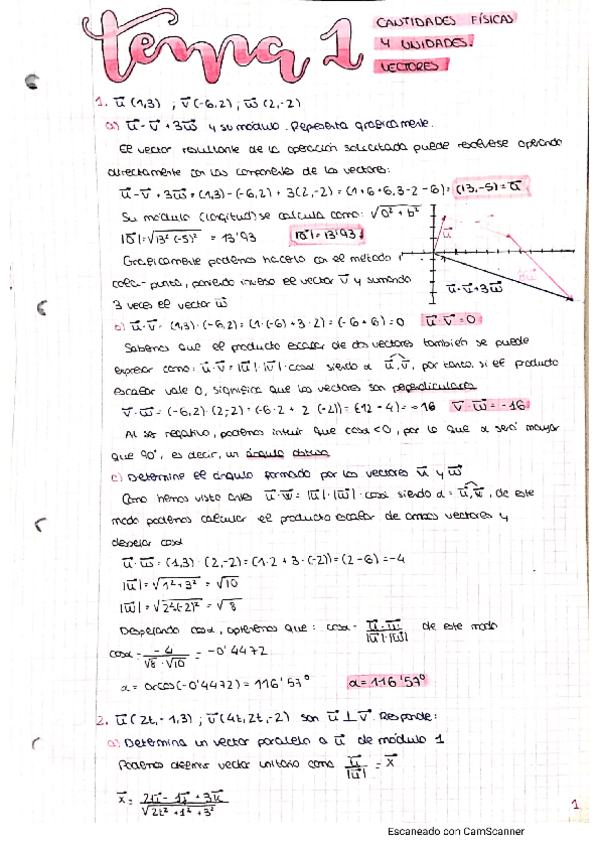 tema 1
CANTIDADES FÍSICAS
Y UNIDADES.
VECTORES
1. u⃗ (1,3) ; v⃗ (-6,2) ; w⃗ (2,-2)
a) u⃗ - v⃗ + 3w⃗ y su módulo. Representa gráficamente.
El vector resultante de la operación solicitada puede resolverse operando
directamente con las componentes de los vectores:
u⃗ - v⃗ + 3w⃗ = (1,3) - (-6,2) + 3(2,-2) = (1+6+6, 3-2-6) = (13,-5) = a⃗
Su módulo (longitud) se calcula como: √a² + b²
|a⃗| = √13² (-5)² = 13'93 |a⃗| = 13'93
u⃗
Gráficamente podemos hacerlo con el método
cola-punta, poniendo inverso el vector v⃗ y sumando
u⃗ - v⃗ + 3w⃗
3 veces el vector w⃗
b) u⃗ · v⃗ = (1,3) · (-6,2) = (1·(-6) + 3·2) = (-6+6) = 0 u⃗ · v⃗ = 0
Sabemos que el producto escalar de dos vectores también se puede
expresar como: u⃗ · v⃗ = |u⃗| · |v⃗| · cosα siendo α = u⃗,v⃗, por tanto, si el producto
escalar vale 0, significa que los vectores son perpendiculares
v⃗ · w⃗ = (-6,2) · (2,-2) = (-6·2 + 2 (-2)) = (-12 - 4) = -16 v⃗ · w⃗ = -16
Al ser negativo, podemos intuir que cosα<0, por lo que α será mayor
que 90°, es decir, un ángulo obtuso
c) Determine el ángulo formado por los vectores u⃗ y w⃗
Como hemos visto antes u⃗ · w⃗ = |u⃗| · |w⃗| · cosα siendo α = u⃗,v⃗, de este
modo podemos calcular el producto escalar de ambos vectores y
despejar cosα
u⃗ · w⃗ = (1,3) · (2,-2) = (1·2 + 3·(-2)) = (2-6) = -4
|u⃗| = √1²+3² = √10
|w⃗| = √2²(-2)² = √8
Despejando cosα, obtenemos que: cosα = u⃗·w⃗ / |u⃗|·|w⃗| de este modo
cosα = -4 / √8 · √10 = -0'4472
α = arcos(-0'4472) = 116'57° α = 116'57°
2. u⃗ (2t,-1,3) ; v⃗ (4t,2t,-2) son u⃗ ⊥ v⃗. Responde:
a) Determina un vector paralelo a u⃗ de módulo 1
Podemos definir vector unitario como u⃗ / |u⃗| = x⃗
x⃗ = 2ti⃗ - 1j⃗ + 3k⃗ / √2t² + 1² + 3²
1
Escaneado con CamScanner